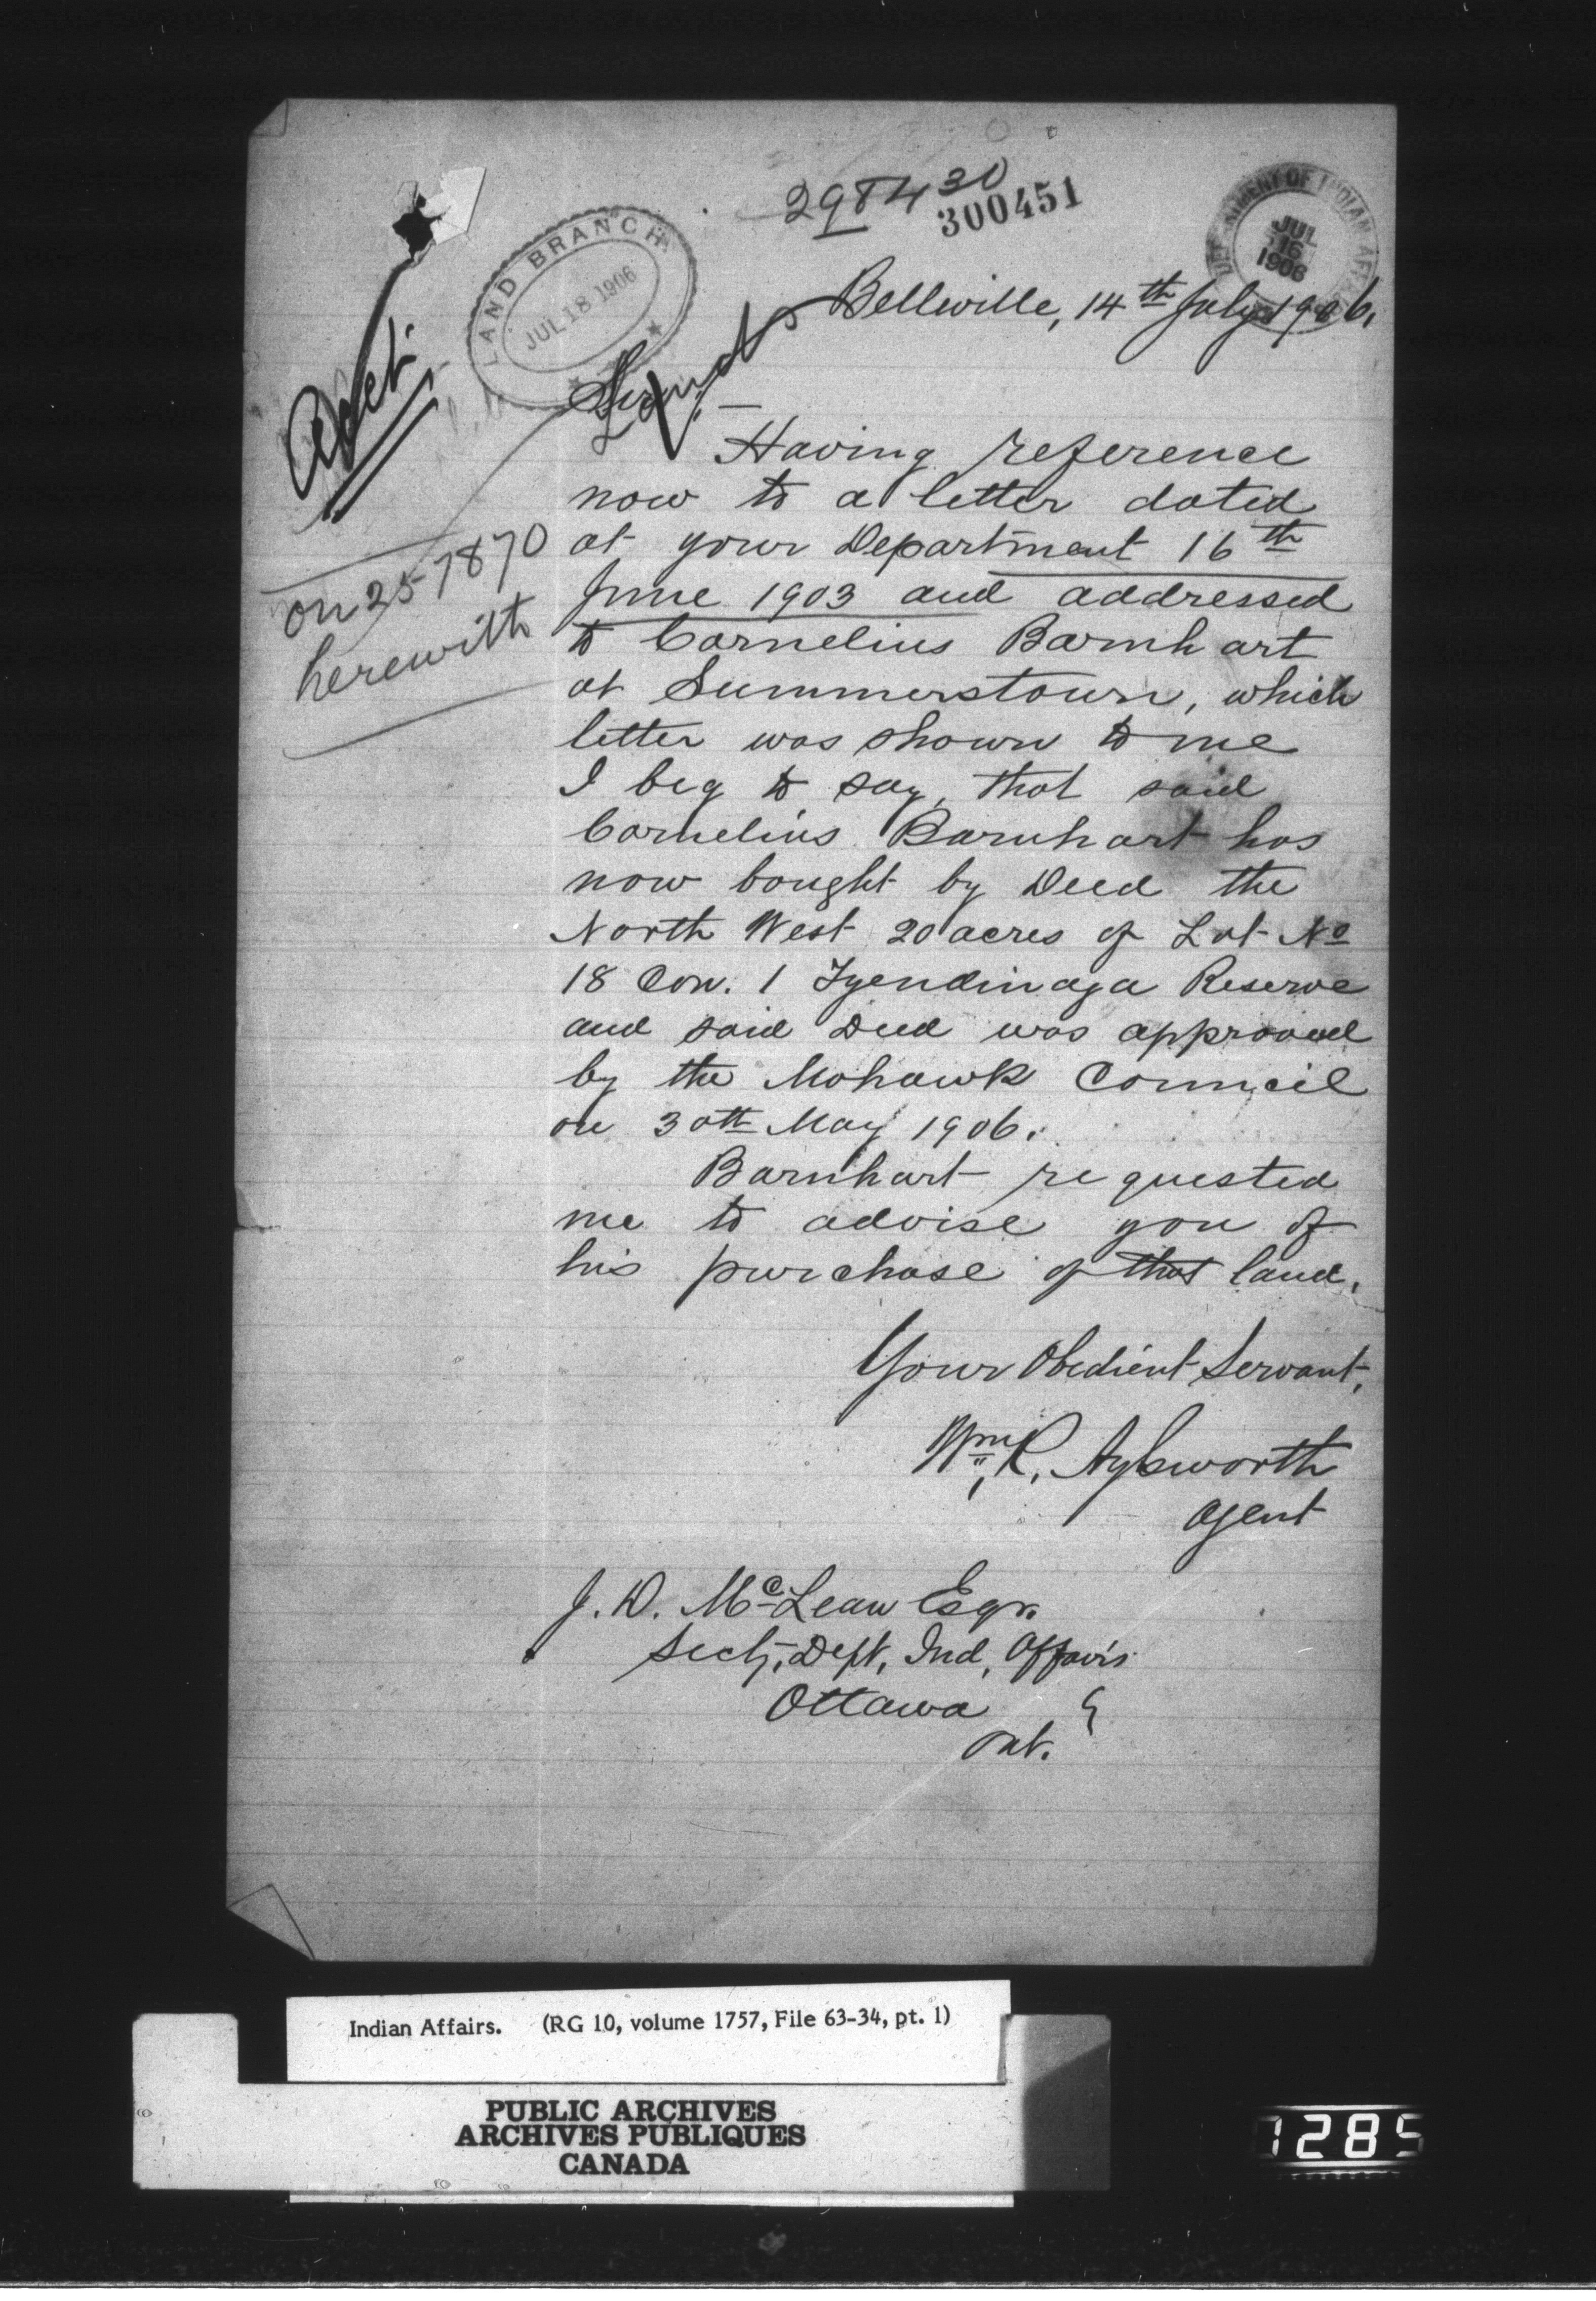 298430
300451
DEPARTMENT OF INDIAN AFFAIRS
JUL
16
1906
LAND BRANCH
JUL 18 1906
Belleville, 14th July 1906.
Land
Sir,—
Having reference
now to a letter dated
at your Department 16th
on 257870
June 1903 and addressed
herewith
to Cornelius Barnhart
at Summerstown, which
letter was shown to me
I beg to say, that said
Cornelius Barnhart has
now bought by Deed the
North West 20 acres of Lot No
18 Con. 1 Tyendinaga Reserve
and said Deed was approved
by the Mohawk Council
on 30th May 1906.
Barnhart requested
me to advise you of
his purchase of that land.
Your Obedient Servant,
Wm. R. Aylsworth
Agent
J. D. McLean Esqr.
Secty, Dept, Ind, Affairs
Ottawa
Ont.
Indian Affairs. (RG 10, volume 1757, File 63-34, pt. 1)
PUBLIC ARCHIVES
ARCHIVES PUBLIQUES
CANADA
1285